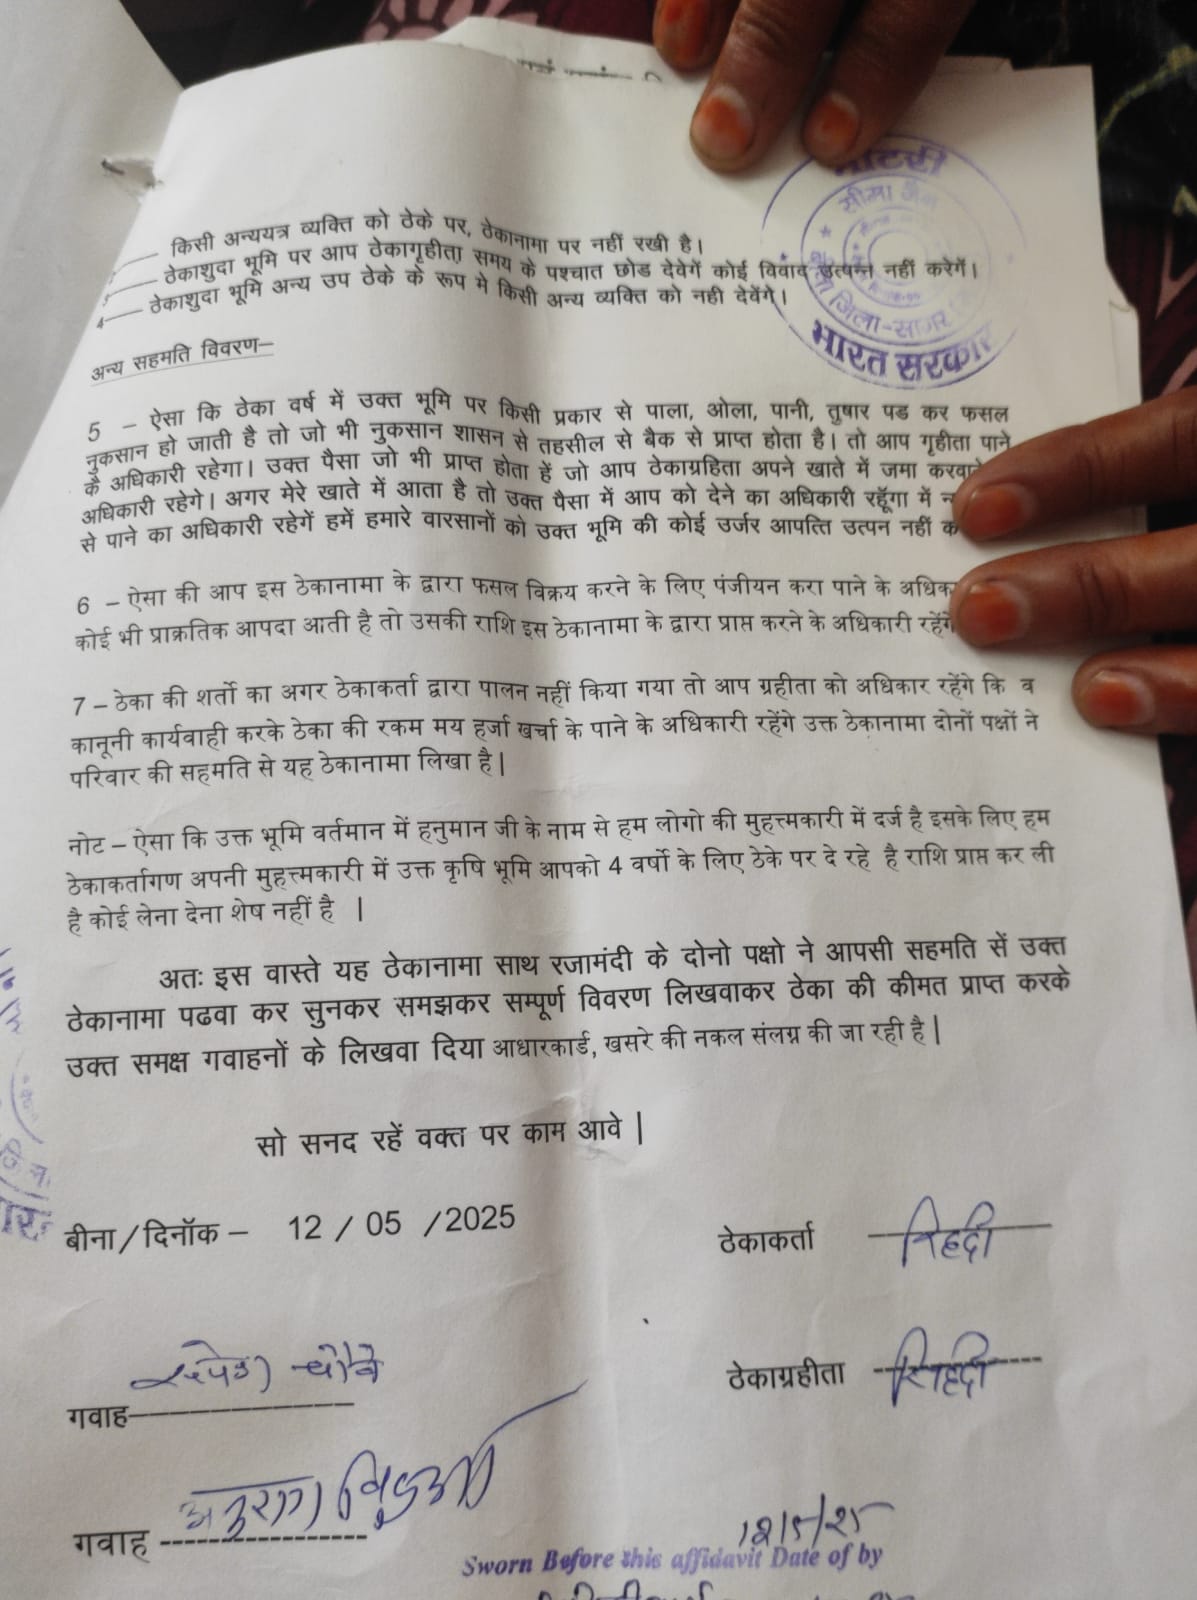 नोटरी
सीमा जैन
जिला-सागर
भारत सरकार
किसी अन्ययत्र व्यक्ति को ठेके पर, ठेकानामा पर नहीं रखी है।
ठेकाशुदा भूमि पर आप ठेकागृहीता समय के पश्चात छोड देवेगें कोई विवाद उत्पन्न नहीं करेगें।
4 ठेकाशुदा भूमि अन्य उप ठेके के रूप मे किसी अन्य व्यक्ति को नही देवेंगे।
अन्य सहमति विवरण–
5 – ऐसा कि ठेका वर्ष में उक्त भूमि पर किसी प्रकार से पाला, ओला, पानी, तुषार पड कर फसल
नुकसान हो जाती है तो जो भी नुकसान शासन से तहसील से बैक से प्राप्त होता है। तो आप गृहीता पाने
कै अधिकारी रहेगा। उक्त पैसा जो भी प्राप्त होता हें जो आप ठेकाग्रहिता अपने खाते में जमा करवाने
अधिकारी रहेगे। अगर मेरे खाते में आता है तो उक्त पैसा में आप को देने का अधिकारी रहूँगा में
से पाने का अधिकारी रहेगें हमें हमारे वारसानों को उक्त भूमि की कोई उर्जर आपत्ति उत्पन नहीं
6 – ऐसा की आप इस ठेकानामा के द्वारा फसल विक्रय करने के लिए पंजीयन करा पाने के
कोई भी प्राक्रतिक आपदा आती है तो उसकी राशि इस ठेकानामा के द्वारा प्राप्त करने के अधिकारी रहेंगे
7 – ठेका की शर्तो का अगर ठेकाकर्ता द्वारा पालन नहीं किया गया तो आप ग्रहीता को अधिकार रहेंगे कि व
कानूनी कार्यवाही करके ठेका की रकम मय हर्जा खर्चा के पाने के अधिकारी रहेंगे उक्त ठेकानामा दोनों पक्षों ने
परिवार की सहमति से यह ठेकानामा लिखा है|
नोट – ऐसा कि उक्त भूमि वर्तमान में हनुमान जी के नाम से हम लोगो की मुहत्त्मकारी में दर्ज है इसके लिए हम
ठेकाकर्तागण अपनी मुहत्त्मकारी में उक्त कृषि भूमि आपको 4 वर्षो के लिए ठेके पर दे रहे है राशि प्राप्त कर ली
है कोई लेना देना शेष नहीं है |
अतः इस वास्ते यह ठेकानामा साथ रजामंदी के दोनो पक्षो ने आपसी सहमति सें उक्त
ठेकानामा पढवा कर सुनकर समझकर सम्पूर्ण विवरण लिखवाकर ठेका की कीमत प्राप्त करके
उक्त समक्ष गवाहनों के लिखवा दिया आधारकार्ड, खसरे की नकल संलग्न की जा रही है|
सो सनद रहें वक्त पर काम आवे|
बीना/दिनॉक – 12 / 05 /2025
ठेकाकर्ता
ठेकाग्रहीता
चौबे
गवाह
गवाह
12/5/25
Sworn Before this affidavit Date of by